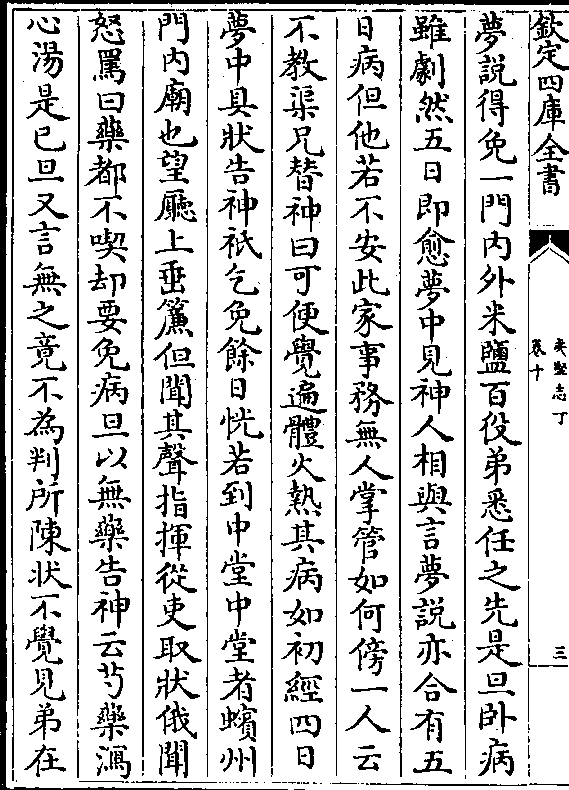 欽定四庫全書
夷堅志丁
卷十
三
夢説得免一門内外米鹽百役弟悉任之先是旦卧病
雖劇然五日即愈夢中見神人相與言夢説亦合有五
日病但他若不安此家事務無人掌管如何傍一人云
不教渠兄替神曰可便覺遍體火熱其病如初經四日
夢中具狀告神祇乞免餘日恍若到中堂中堂者蠙州
門内廟也望廳上垂簾但聞其聲指揮從吏取狀俄聞
怒罵曰藥都不喫却要免病旦以無藥告神云芍藥瀉
心湯是已旦又言無之竟不為判所陳狀不覺見弟在